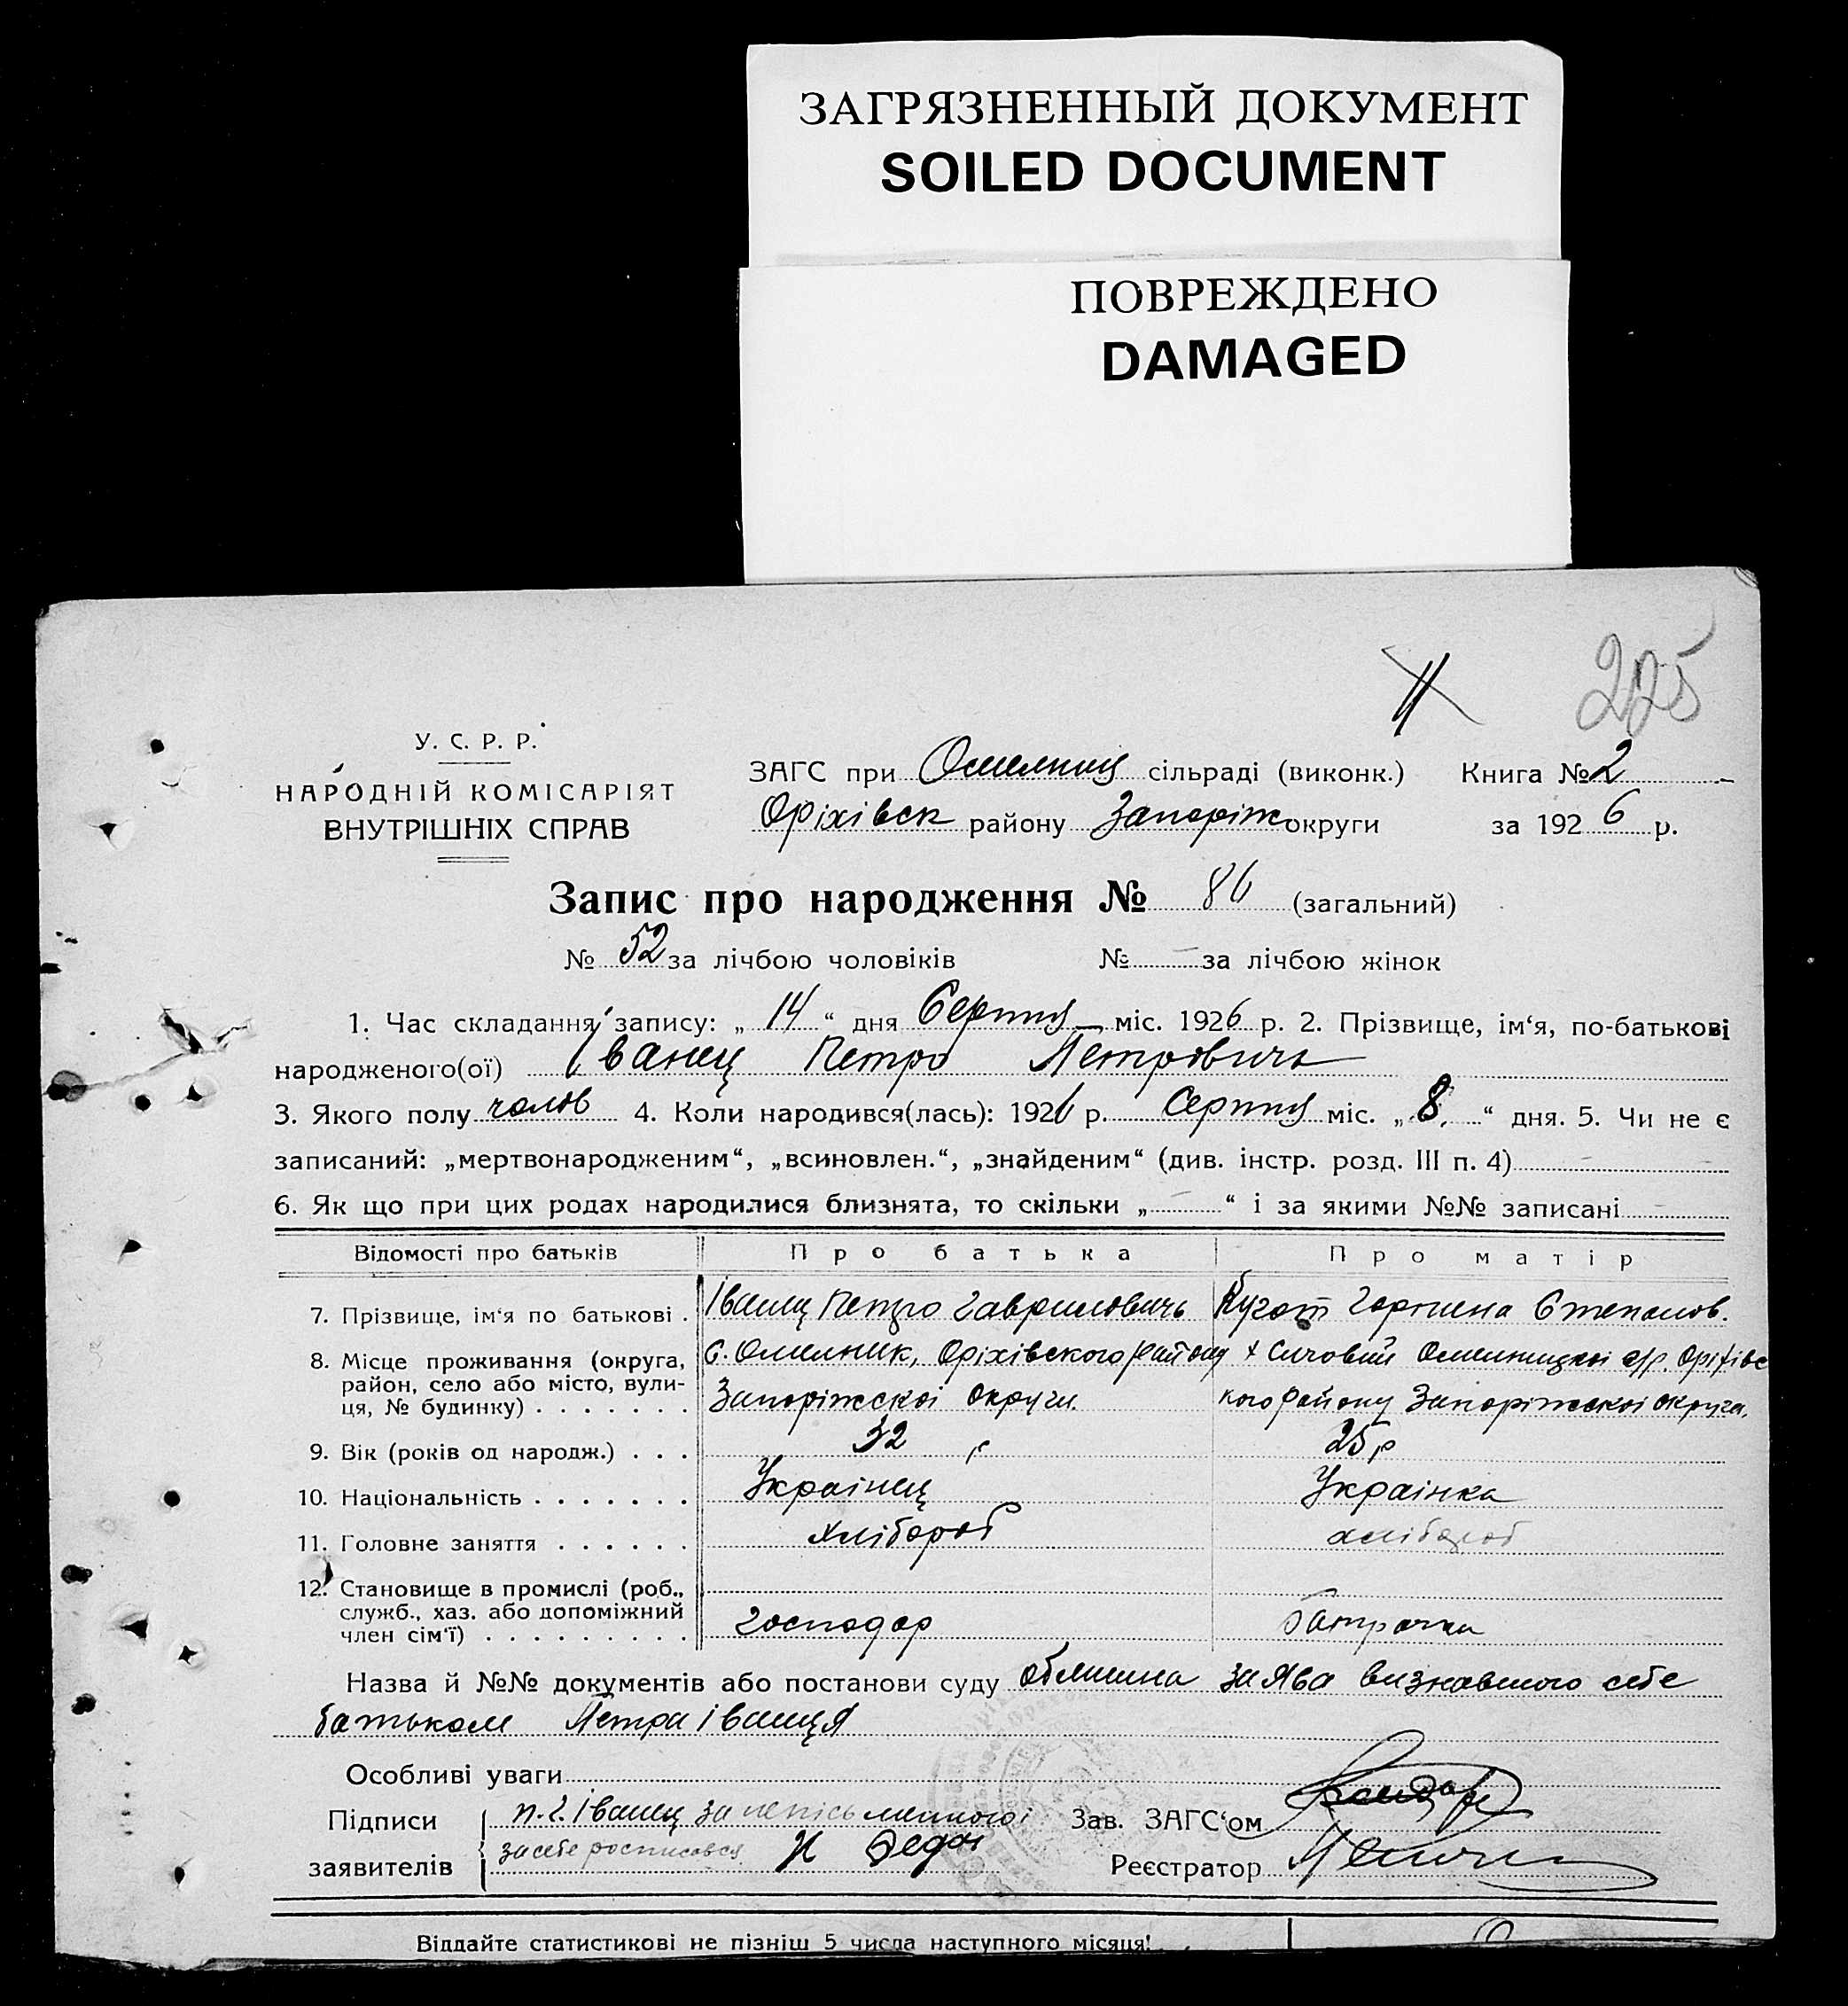 ЗАГРЯЗНЕННЫЙ ДОКУМЕНТ
SOILED DOCUMENT
ПОВРЕЖДЕНО
DAMAGED
225
У. С. Р. Р.
НАРОДНІЙ КОМІСАРІЯТ
ВНУТРІШНІХ СПРАВ
ЗАГС при Омельниц сільраді (виконк.) Книга № 2
Оріхівск району Запоріж округи за 1926 р.
Запис про народження № 86 (загальний)
№ 52 за лічбою чоловіків № — за лічбою жінок
1. Час складання запису: „ 14 “ дня Серпня міс. 1926 р. 2. Прізвище, ім‘я, по-батькові
народженого(ої) Іванец Петро Петровичь
3. Якого полу чолов 4. Коли народився(лась): 1926 р. Серпня міс. „ 8. “ дня. 5. Чи не є
записаний: „мертвонародженим“, „всиновлен.“, „знайденим“ (див. інстр. розд. III п. 4) —
6. Як що при цих родах народилися близнята, то скільки „ — “ і за якими №№ записані —
Відомості про батьків Про батька Про матір
7. Прізвище, ім‘я по батькові . Іванец Петро Гавриловичь Горпина Степанов.
8. Місце проживання (округа, район, село або місто, вулиця, № будинку) . . . . . . .
С. Омельник, Оріхівского району Запоріжскої округи.
х Сичовий Омельницкої с/р. Оріхівского району Запоріжскої округи.
9. Вік (років од народж.) . . . 32 р 25 р
10. Національність . . . . . . . Українец Українка
11. Головне заняття . . . . . . хлібороб хлібороб
12. Становище в промислі (роб., служб., хаз. або допоміжний член сім‘ї) . . . . . . . . . . господар батрачка
Назва й №№ документів або постанови суду заява визнавшого себе
батьком Петра Іванця
Особливі уваги
Підписи п. г. Іванец за Зав. ЗАГС‘ом
заявителів за себе росписався Реєстратор
Віддайте статистикові не пізніш 5 числа наступного місяця!